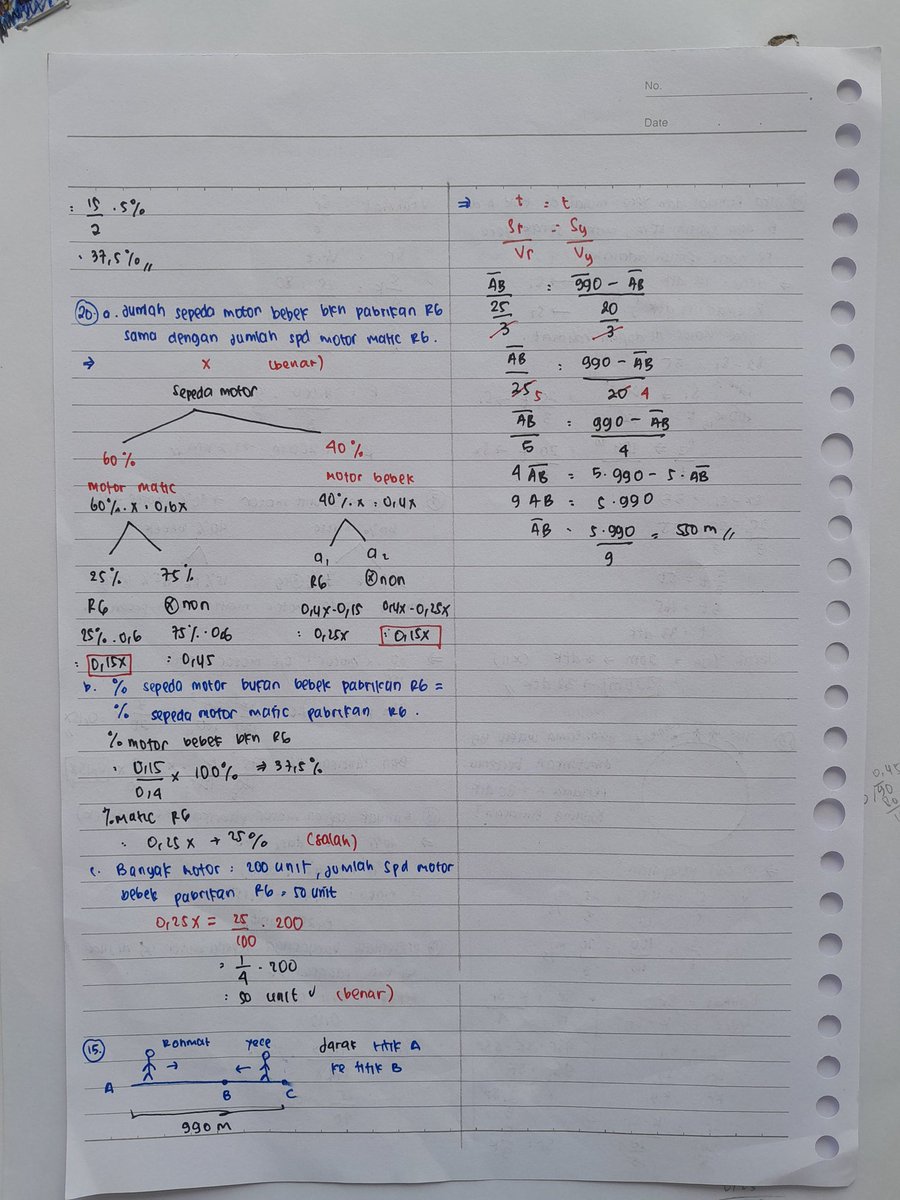 No.
Date
: 15/2 . 5%
: 37,5% //
20. a. Jumlah sepeda motor bebek bkn pabrikan R6
sama dengan jumlah spd motor matic R6.
⇒ x (benar)
sepeda motor
60% 40%
motor matic motor bebek
60%.x = 0,6x 40%.x = 0,4x
25% 75% a1 a2
R6 ⊗non R6 ⊗non
25%.0,6 75%.0,6 0,4x-0,15 0,4x-0,25x
: 0,15x : 0,45 : 0,25x : 0,15x
b. % sepeda motor bukan bebek pabrikan R6 =
% sepeda motor matic pabrikan R6.
% motor bebek bkn R6
: 0,15/0,4 x 100% ⇒ 37,5%
% matic R6
: 0,25x → 25% (salah)
c. Banyak motor : 200 unit, jumlah spd motor
bebek pabrikan R6 = 50 unit
0,25x = 25/100 . 200
: 1/4 . 200
: 50 unit ✓ (benar)
15. Rohmat Yece jarak titik A
ke titik B
A B C
990 m
⇒ t = t
Sr/Vr = Sy/Vy
AB/(25/3) : (990 - AB)/(20/3)
AB/25 5 : (990 - AB)/20 4
AB/5 : (990 - AB)/4
4 AB = 5.990 - 5.AB
9 AB = 5.990
AB = 5.990/9 = 550 m //
0,45